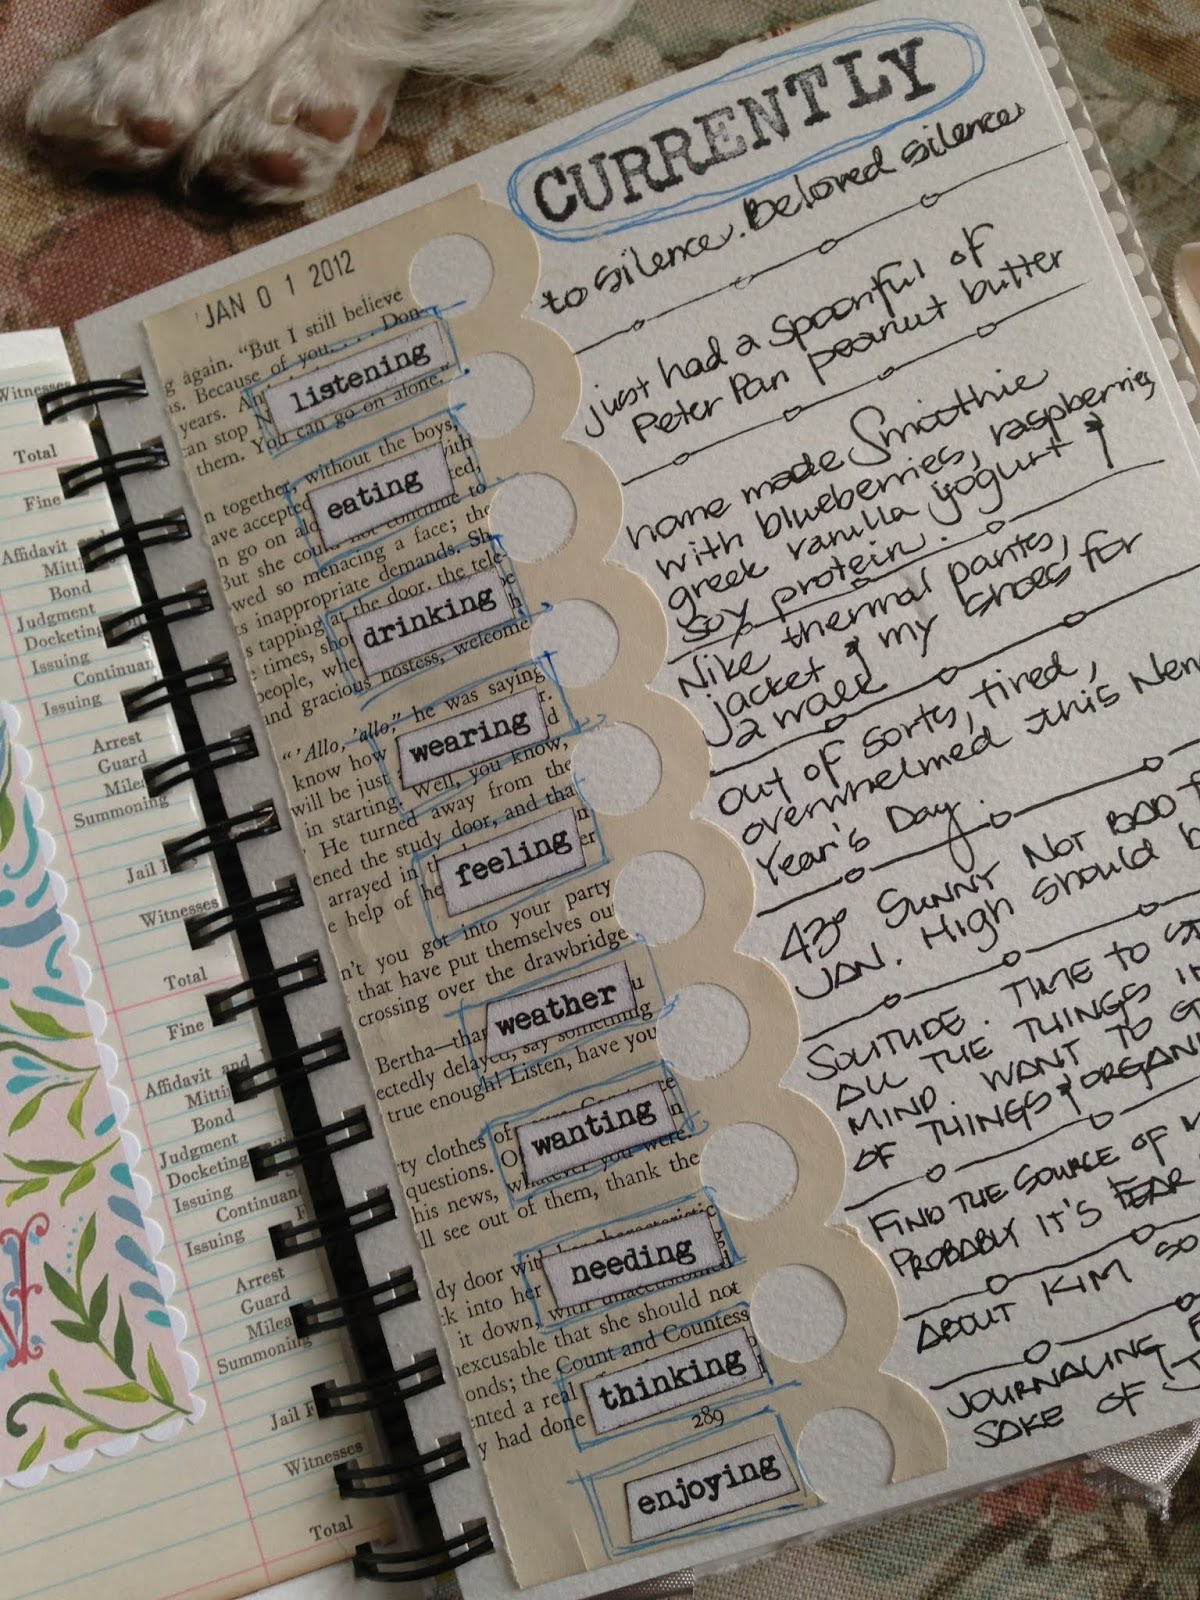 CURRENTLY
JAN 0 1 2012
listening
to silence. Beloved silence
eating
just had a spoonful of
Peter Pan peanut butter
drinking
home made Smoothie
with blueberries, raspberries
greek vanilla yogurt &
soy protein.
wearing
Nike thermal pants,
jacket & my shoes for
a walk
feeling
out of sorts, tired,
overwhelmed this New
Year's Day.
weather
43° SUNNY NOT BAD
JAN. HIGH should
wanting
SOLITUDE. TIME TO
ALL THE THINGS
MIND. WANT TO
OF THINGS & ORGAN
needing
FIND THE SOURCE OF
PROBABLY IT'S FEAR
thinking
ABOUT KIM SO
enjoying
JOURNALING
SAKE OF
g again. "But I still believe
s. Because of you. . . . Don
years. An
can stop N
them. You can go on alone."
n together, without the boys,
ave accepted
n go on al
But she could not continue to
owed so menacing a face; the
s inappropriate demands. Sh
s tapping at the door, the tele-
e times, sho
people, whe
and gracious hostess, welcome
"'Allo, 'allo," he was saying
know how
will be just
in starting. Well, you know,
He turned away from the
ened the study door, and that
arrayed in th
e help of he
n't you got into your party
that have put themselves out
crossing over the drawbridge
Bertha—than
ectedly delayed, say something
true enough! Listen, have you
ty clothes of
questions. O
his news, whatever you were.
ll see out of them, thank the
dy door with her characteristic
k into her
it down, with unaccustomed
nexcusable that she should not
onds; the Count and Countess
nted a real
y had done
289
Witnesses
Total
Fine
Affidavit and
Mitti
Bond
Judgment
Docketing
Issuing
Continuan
Issuing
Arrest
Guard
Milea
Summoning
Jail F
Witnesses
Total
Fine
Affidavit and
Mitti
Bond
Judgment
Docketing
Issuing
Continuan
Issuing
Arrest
Guard
Milea
Summoning
Jail F
Witnesses
Total